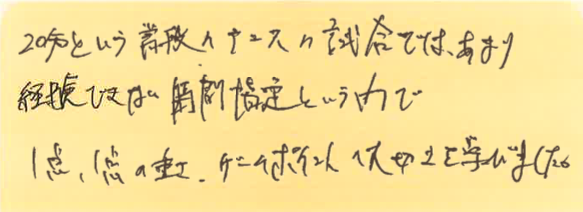 20分という普段のテニスの試合では、あまり
経験できない時間指定という中で
1点、1点の重さ、ゲームポイントの大切さを学びました。